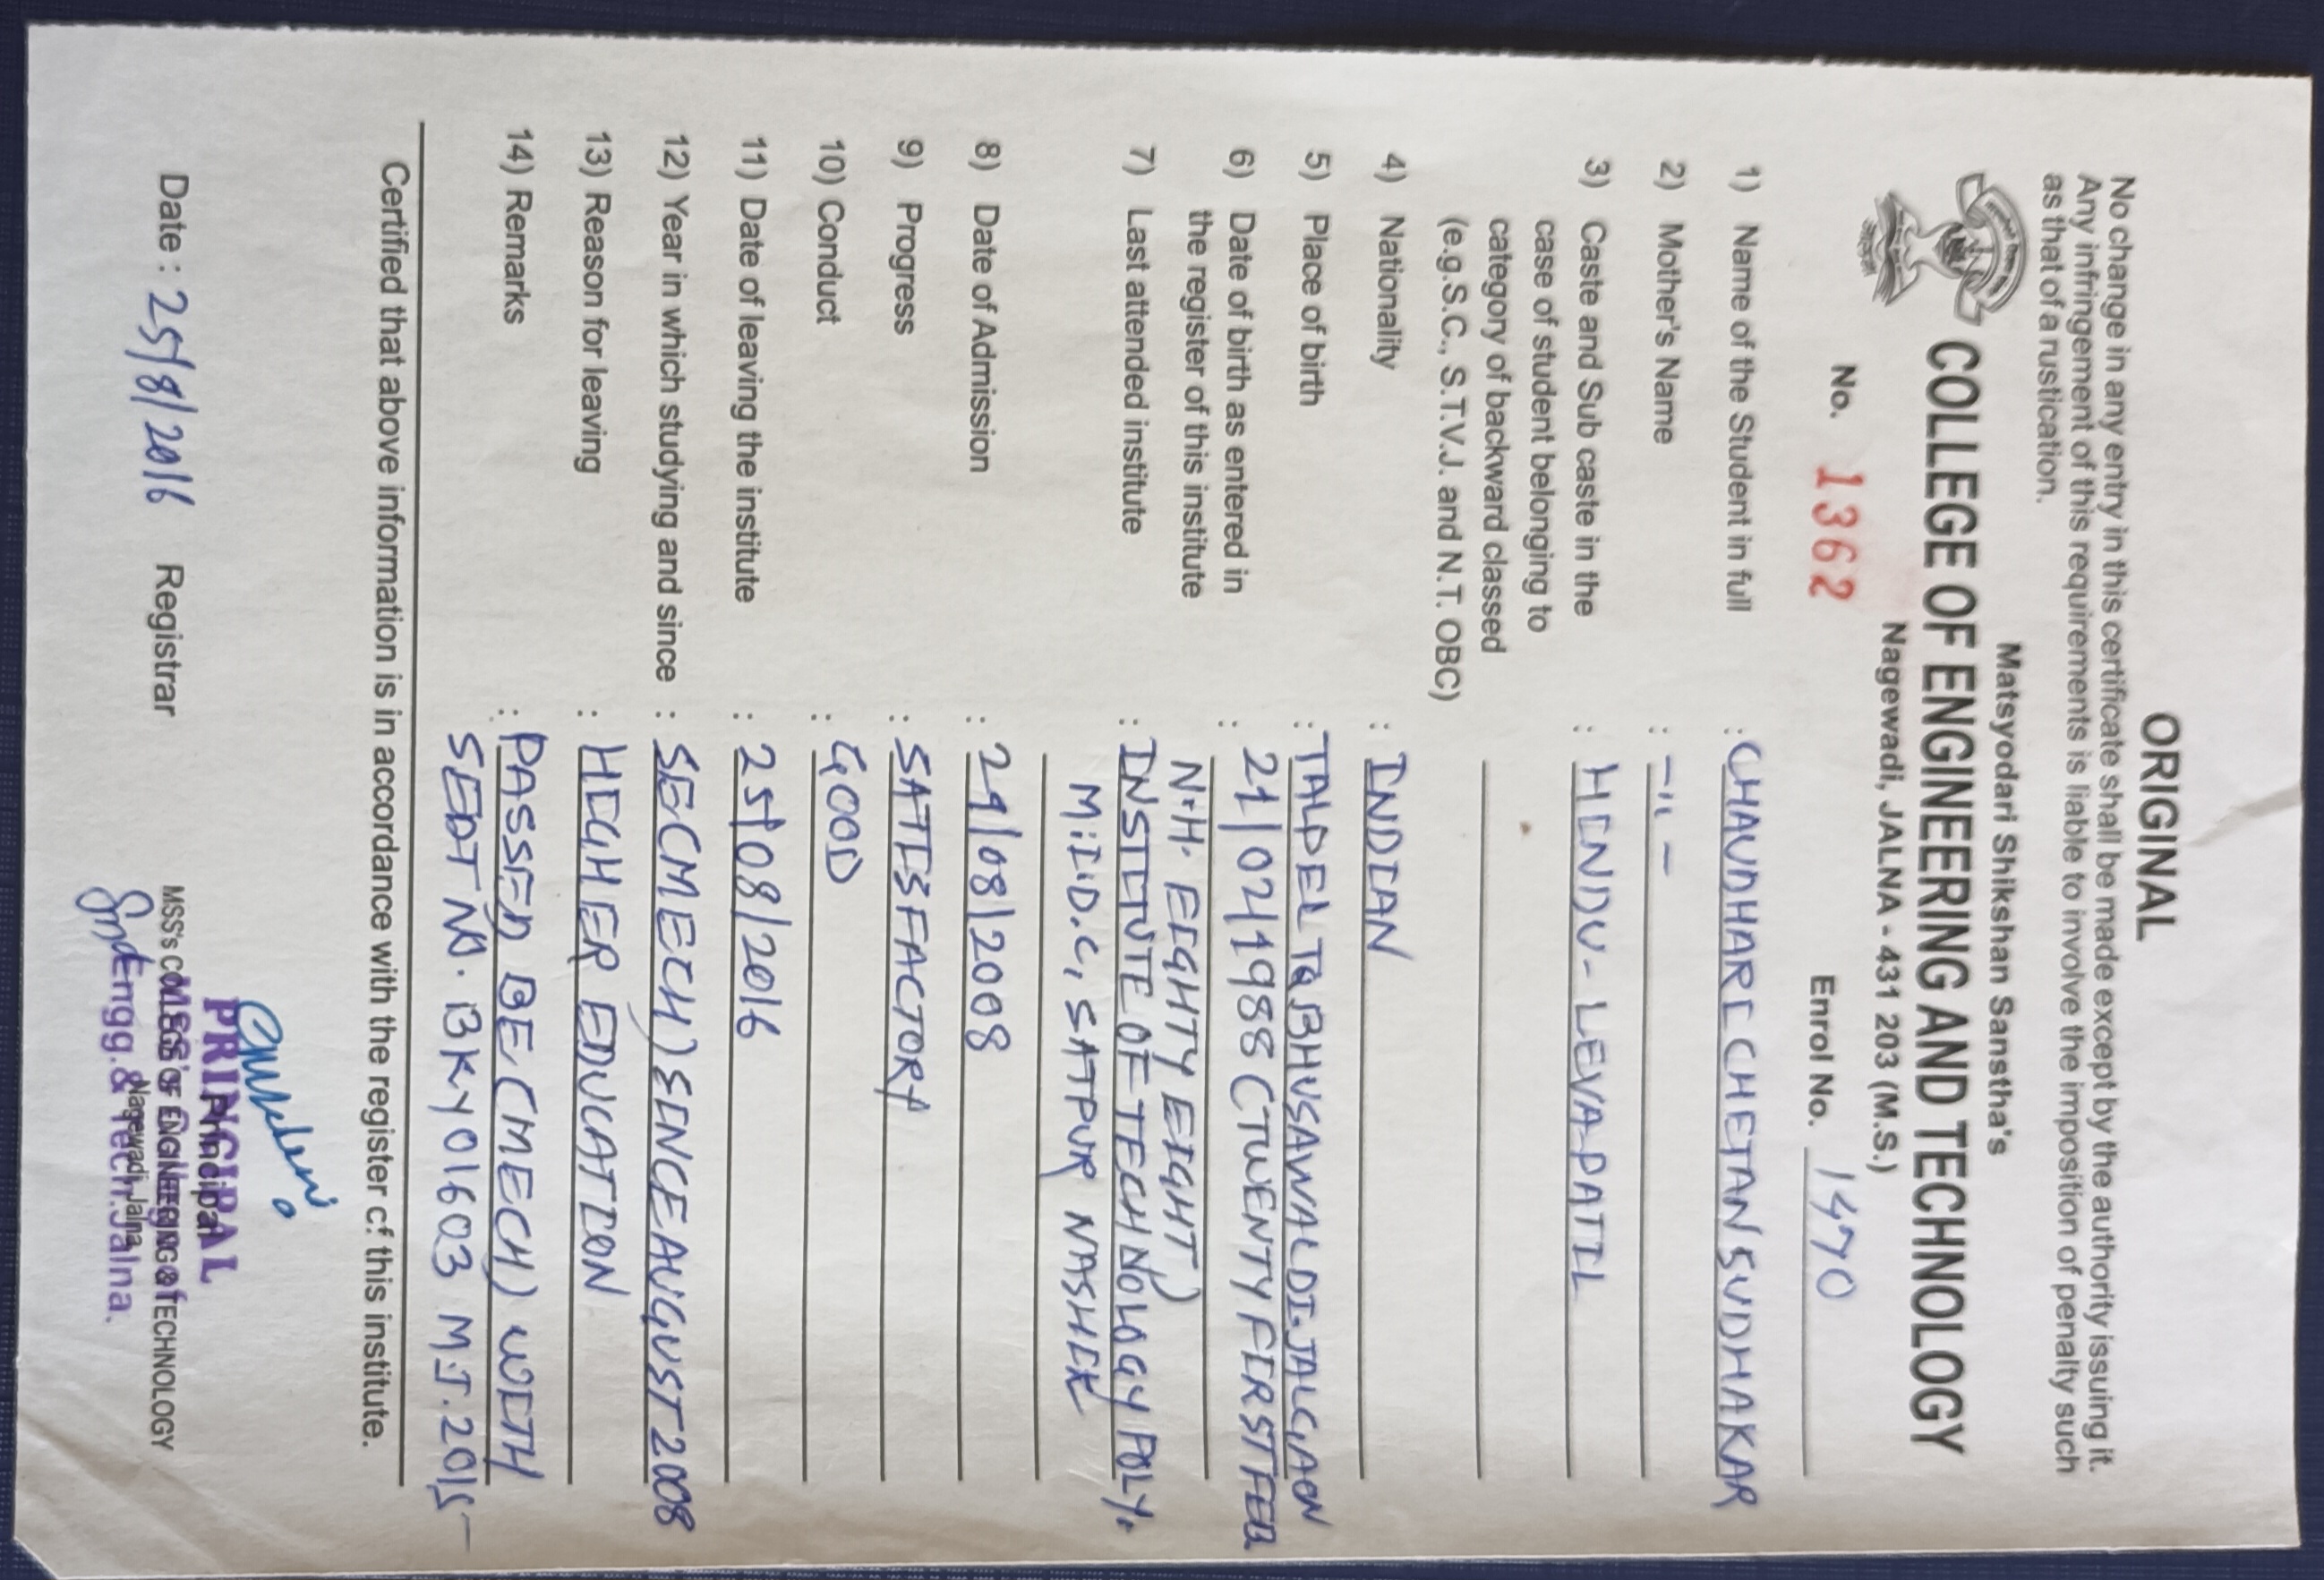 ORIGINAL
No change in any entry in this certificate shall be made except by the authority issuing it.
Any infringement of this requirements is liable to involve the imposition of penalty such
as that of a rustication.
Matsyodari Shikshan Sanstha's
COLLEGE OF ENGINEERING AND TECHNOLOGY
Nagewadi, JALNA - 431 203 (M.S.)
No. 1362 Enrol No. 1470
1) Name of the Student in full : CHAUDHARI CHETAN SUDHAKAR
2) Mother's Name : -"-
3) Caste and Sub caste in the : HINDU - LEVA-PATIL
case of student belonging to
category of backward classed
(e.g.S.C., S.T.V.J. and N.T. OBC)
4) Nationality : INDIAN
5) Place of birth : TALDEL TQ BHUSAWAL DI.JALGAON
6) Date of birth as entered in : 21/02/1988 (TWENTY FIRST FEB
the register of this institute N.H. EIGHTY EIGHT)
7) Last attended institute : INSTITUTE OF TECHNOLOGY POLY.
M.I.D.C, SATPUR NASHIK
8) Date of Admission : 29/08/2008
9) Progress : SATISFACTORY
10) Conduct : GOOD
11) Date of leaving the institute : 25/08/2016
12) Year in which studying and since : SE(MECH) SINCE AUGUST 2008
13) Reason for leaving : HIGHER EDUCATION
14) Remarks : PASSED BE (MECH) WITH
SEAT NO. BKY01603 MJ.2015-
Certified that above information is in accordance with the register of this institute.
Date : 25/8/2016 Registrar Principal
PRINCIPAL
MSS's COLLEGE OF ENGINEERING & TECHNOLOGY
Nagewadi, Jalna
MSS's College of
Engg. & Tech. Jalna.